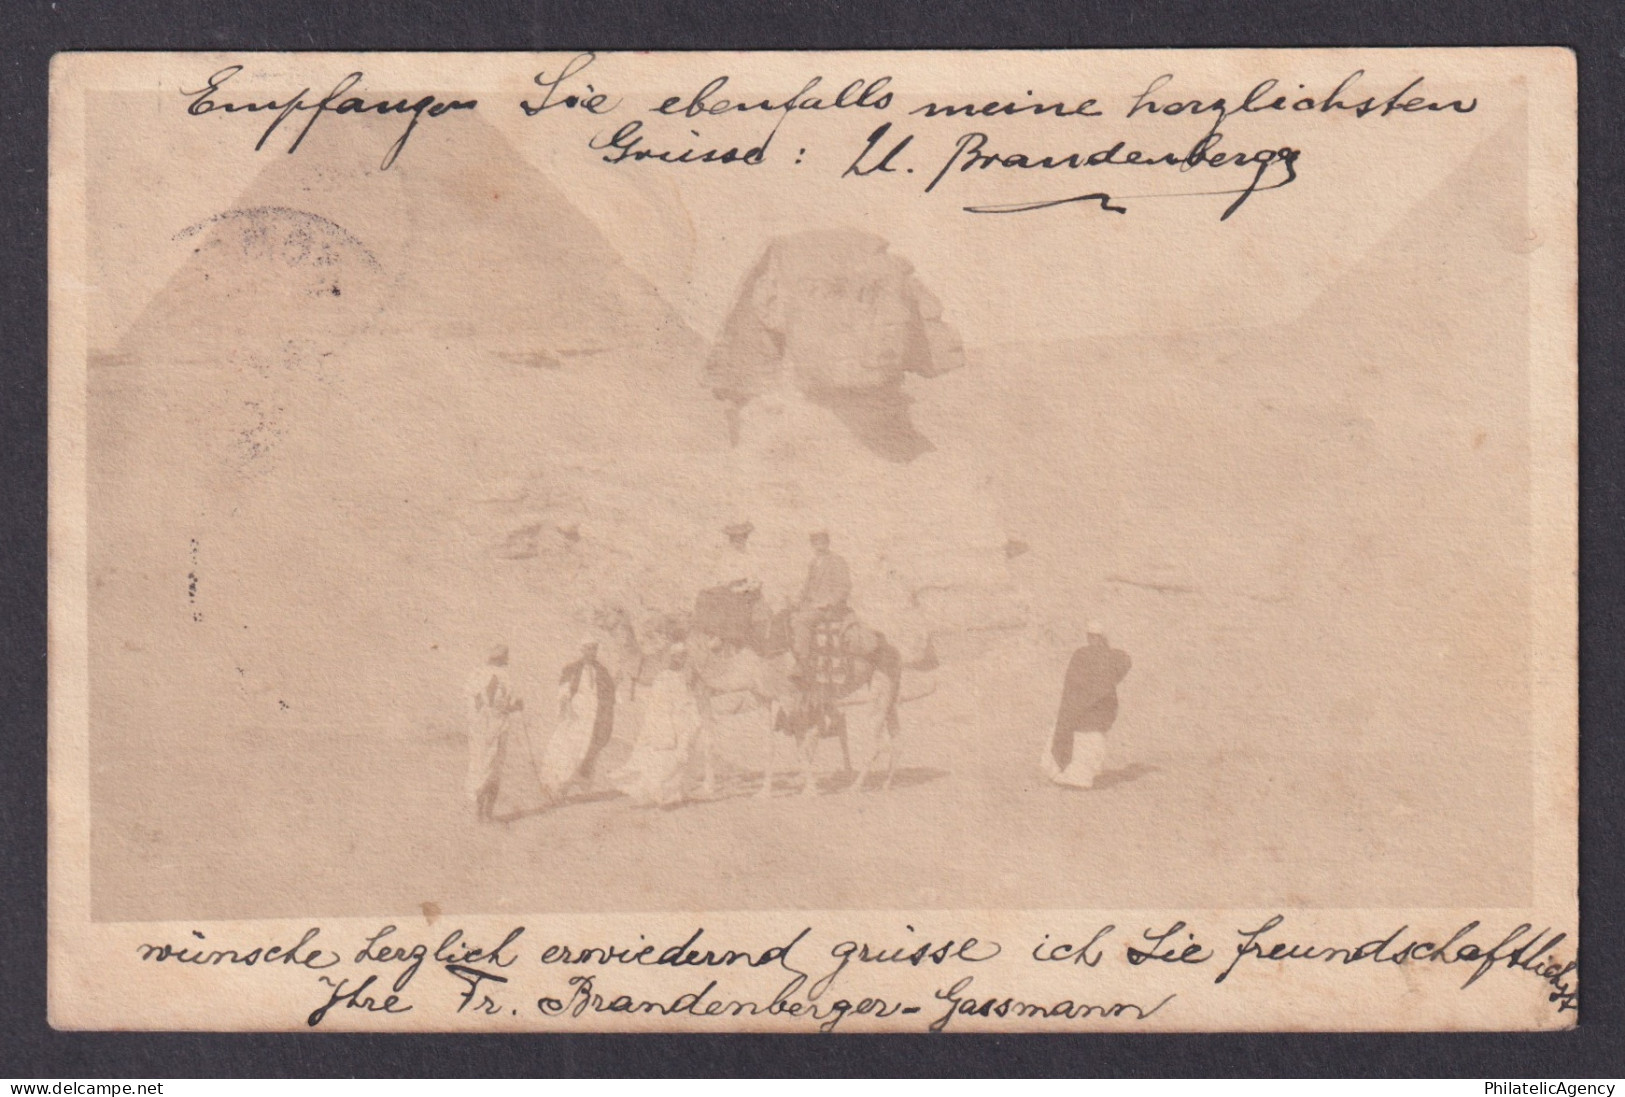 Empfangen Sie ebenfalls meine herzlichsten
Grüsse: U. Brandenberger
wünsche herzlich erwiedernd grüsse ich Sie freundschaftlichst
Ihre Fr. Brandenberger-Gassmann
www.delcampe.net
PhilatelicAgency